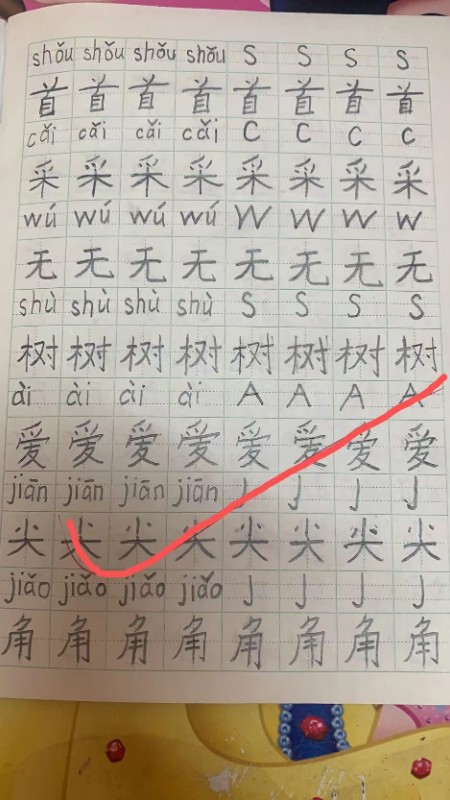 shǒu shǒu shǒu shǒu S S S S
首 首 首 首 首 首 首 首
cǎi cǎi cǎi cǎi C C C C
采 采 采 采 采 采 采 采
wú wú wú wú W W W W
无 无 无 无 无 无 无 无
shù shù shù shù S S S S
树 树 树 树 树 树 树 树
ài ài ài ài A A A A
爱 爱 爱 爱 爱 爱 爱 爱
jiān jiān jiān jiān J J J J
尖 尖 尖 尖 尖 尖 尖 尖
jiǎo jiǎo jiǎo jiǎo J J J J
角 角 角 角 角 角 角 角